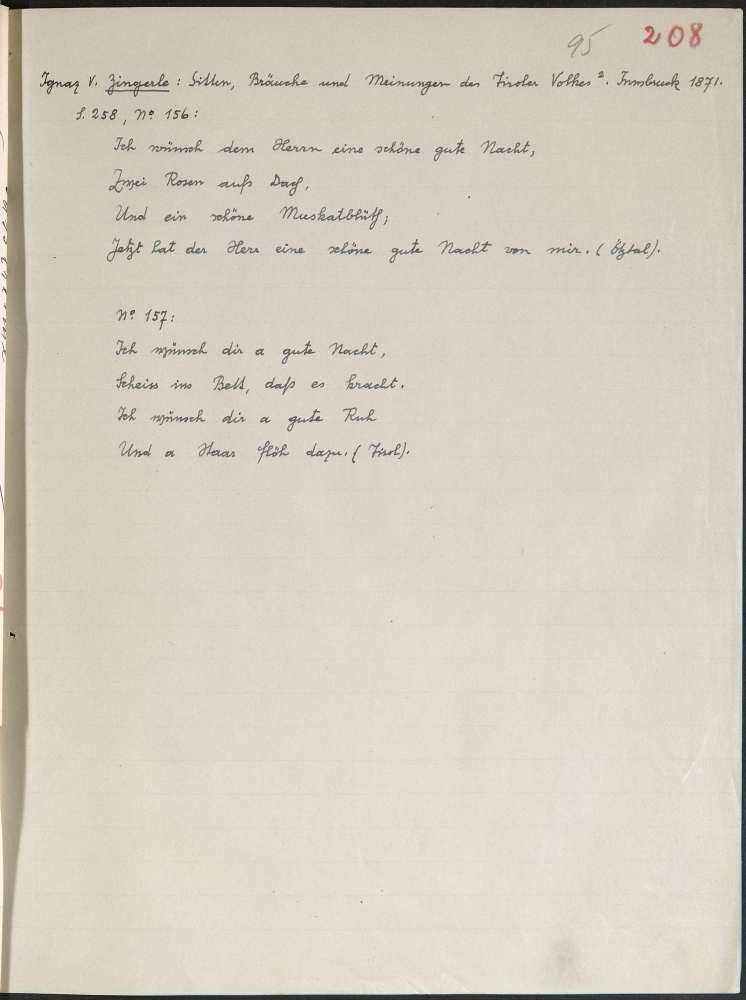 95 208
Ignaz V. Zingerle: Sitten, Bräuche und Meinungen des Tiroler Volkes². Innsbruck 1871.
S. 258, No 156:
Ich wünsch dem Herrn eine schöne gute Nacht,
Zwei Rosen aufs Dach,
Und ein schöne Muskatblüth;
Jetzt hat der Herr eine schöne gute Nacht von mir. (Ötztal).
No 157:
Ich wünsch dir a gute Nacht,
Scheiss ins Bett, daß es kracht.
Ich wünsch dir a gute Ruh
Und a Haar flöh dazu. (Tirol).